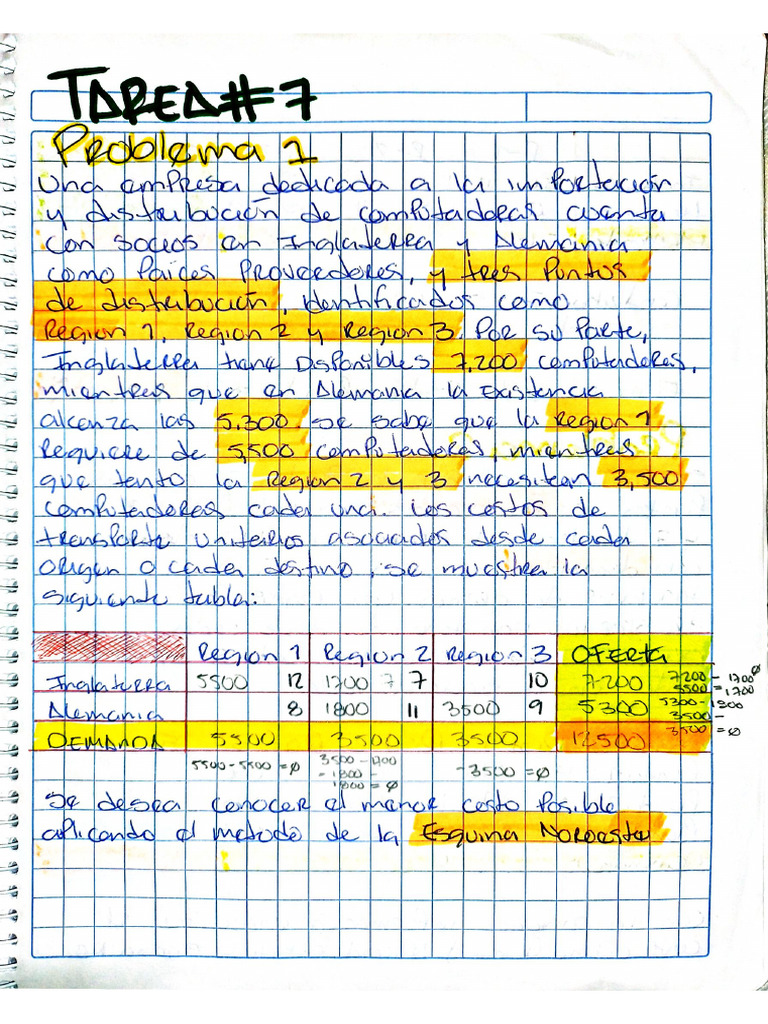 TAREA#7
Problema 1
Una empresa dedicada a la importación
y distribución de computadoras cuenta
con socios en Inglaterra y Alemania
como Paices Proveedores, y tres Puntos
de distribución, identificados como
Region 1, Region 2 y Region 3. Por su Parte,
Inglaterra tiene Disponibles 7,200 computadoras,
mientras que en Alemania la Existencia
alcanza las 5.300 se sabe que la Region 1
Requiere de 5,500 computadoras, mientras
que tanto la Region 2 y 3 necesitan 3,500
computadoras cada una. Los costos de
transporte unitarios asociados desde cada
origen a cada destino, se muestra la
siguiente tabla:
Region 1 Region 2 Region 3 OFERTA
Inglaterra 5500 12 1700 7 7 10 7200 7200 - 1700 0
5500 = 1700
Alemania 8 1800 11 3500 9 5300 5300 - 1800
3500 -
DEMANDA 5500 3500 3500 12500 3500 = 0
5500 - 5500 = 0 3500 - 1700 - 3500 = 0
- 1800 -
1800 = 0
Se desea conocer el menor costo Posible
aplicando el metodo de la Esquina Noroeste